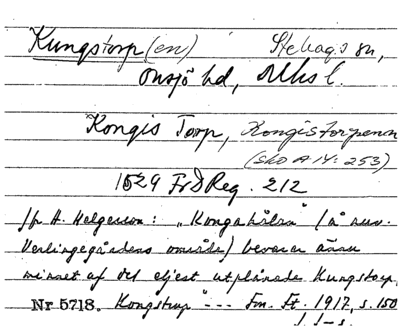 Kungstorp(en) Stehags sn,
Onsjö hd, Mlhs l.
Kongis Torp, Kongistorpenn
(Skò A 14: 253)
1529 Fr d Reg. 212
jfr H. Helgesson: "Kongahålan" (å nuv.
Verlingegårdens område) bevarar ännu
minnet af det eljest utplånade Kungstorp,
Nr 5718. Kongstrup" --- Fm. Ft. 1917, s. 150